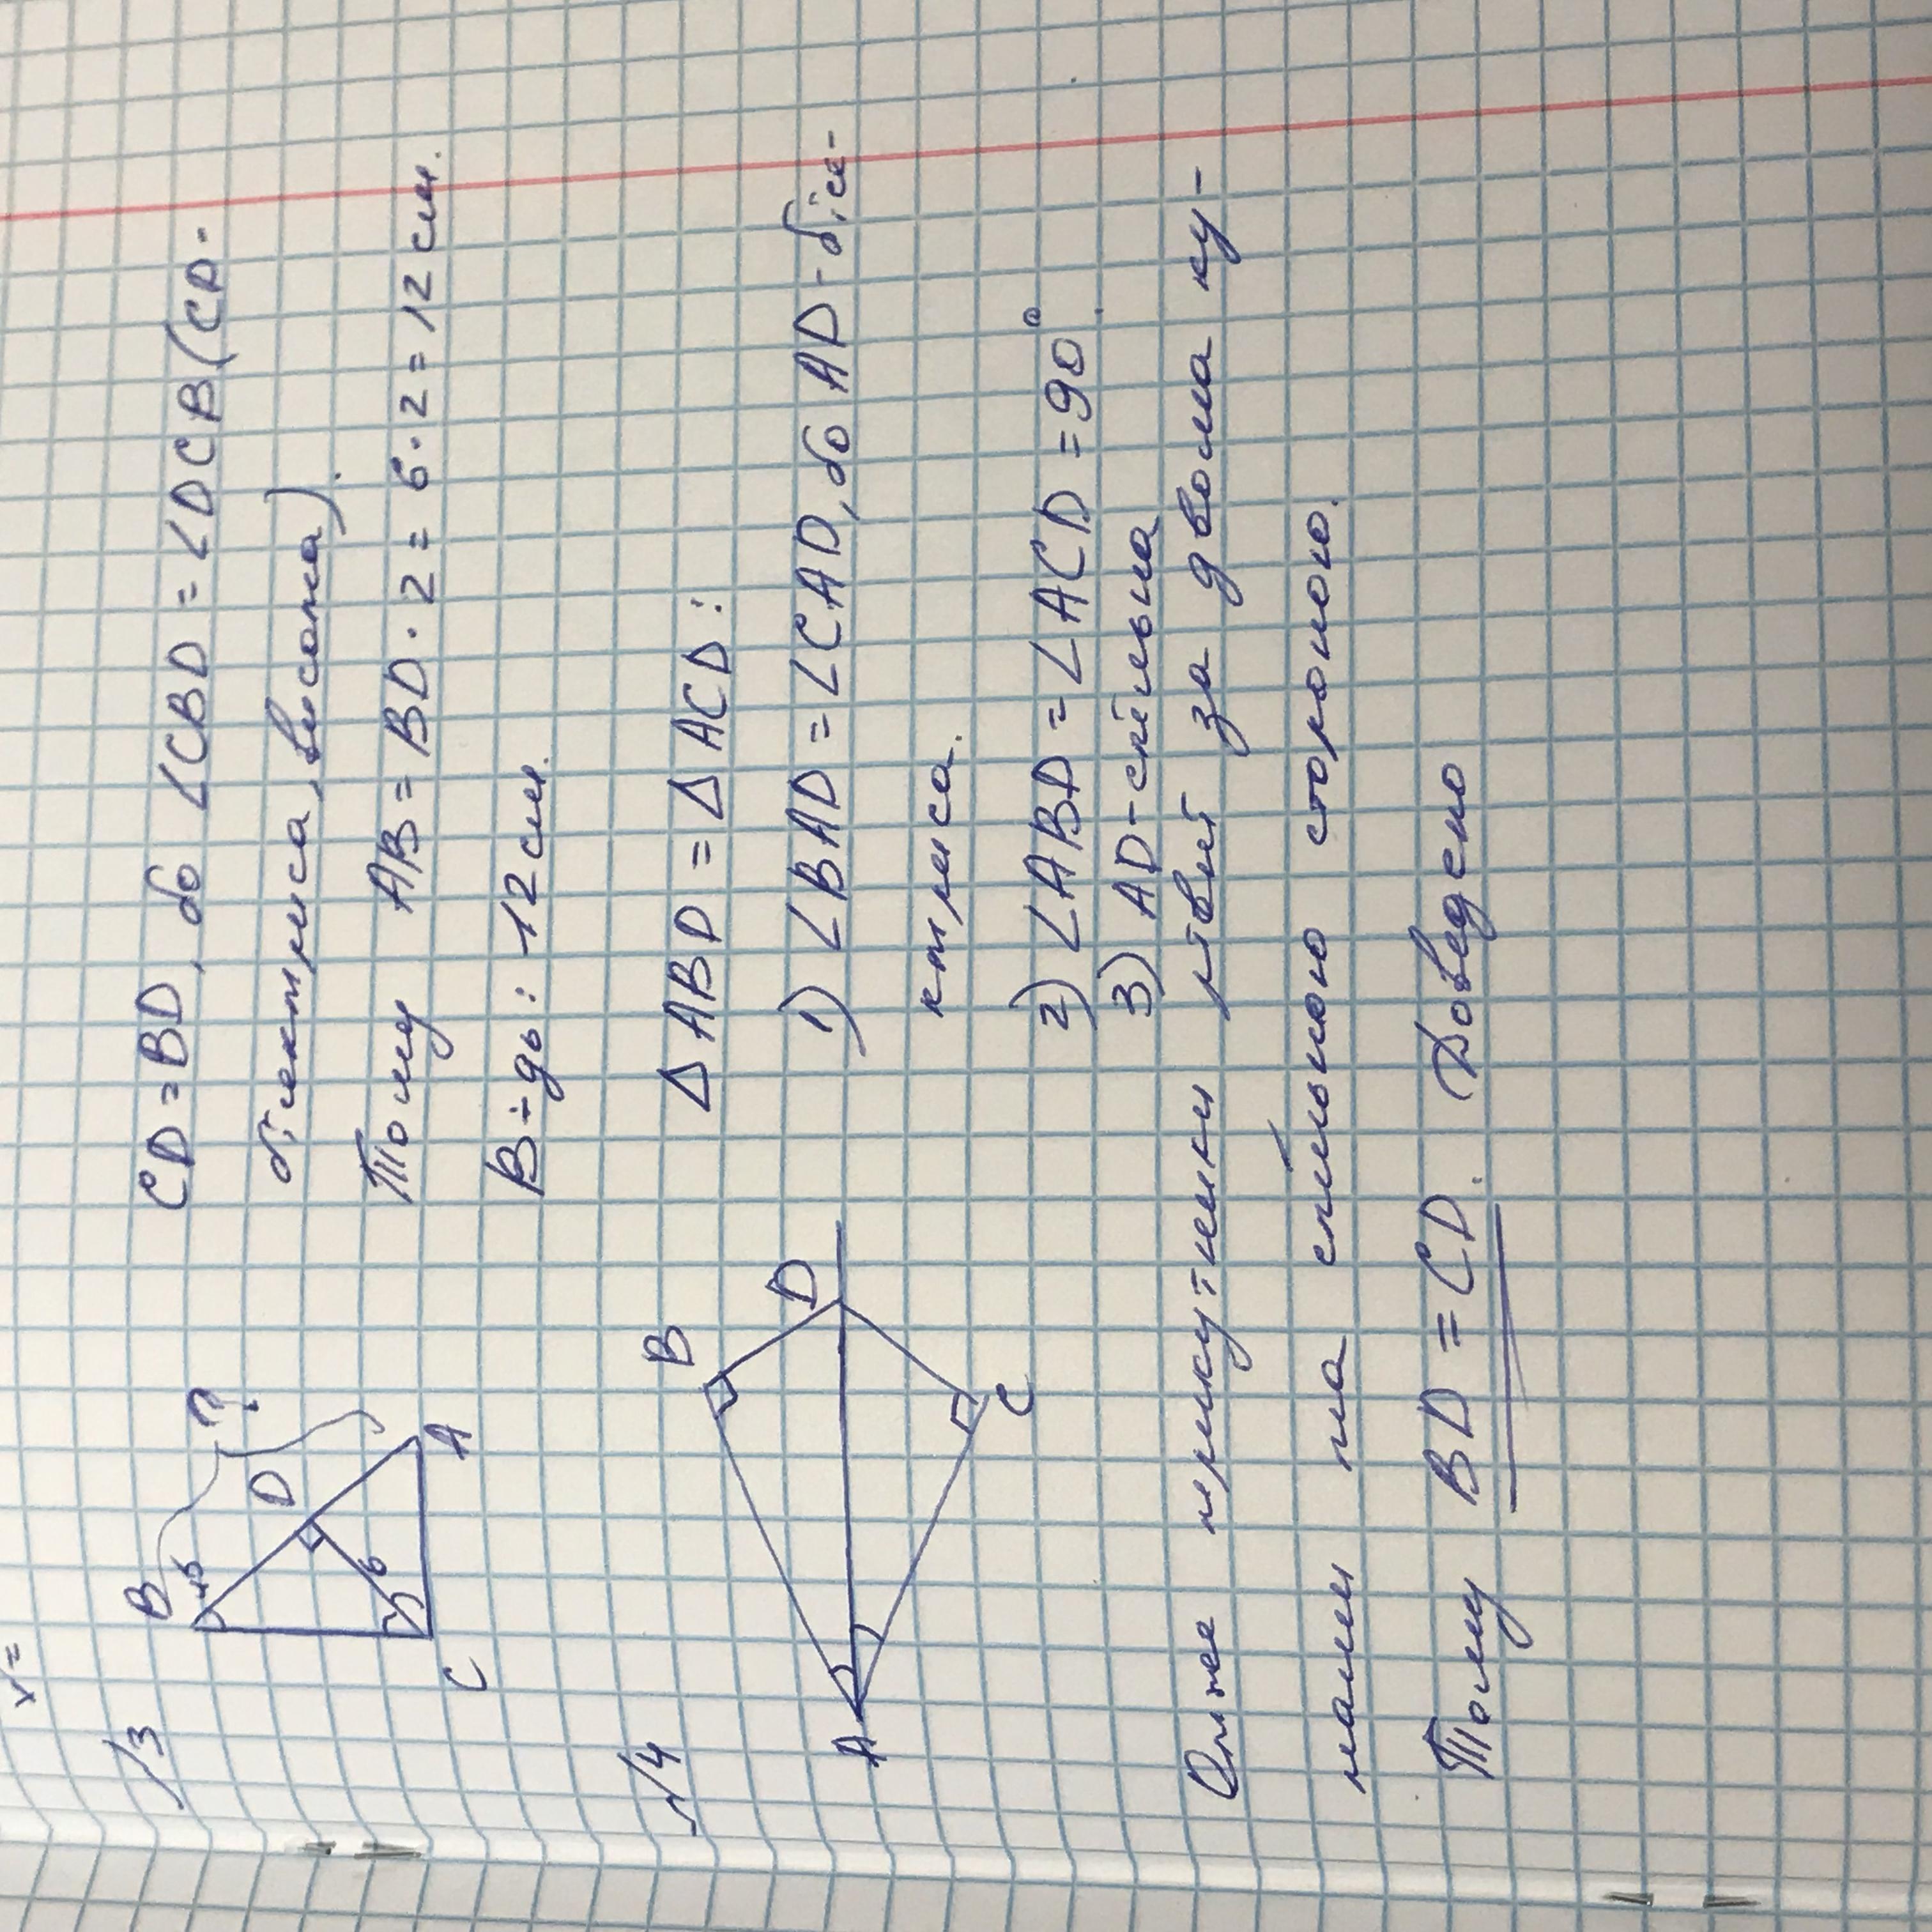 v =
√3
B
45
D
?
6
C
A
CD = BD, бо ∠CBD = ∠DCB (CD -
бісектриса, висота).
Тому AB = BD · 2 = 6 · 2 = 12 см.
В-дь: 12 см.
√4
B
D
A
C
Δ ABD = Δ ACD:
1) ∠BAD = ∠CAD, бо AD - бісе-
ктриса.
2) ∠ABD = ∠ACD = 90°.
3) AD - спільна
Отже трикутники рівні за двома ку-
тами та спільною стороною.
Тому BD = CD. Доведено